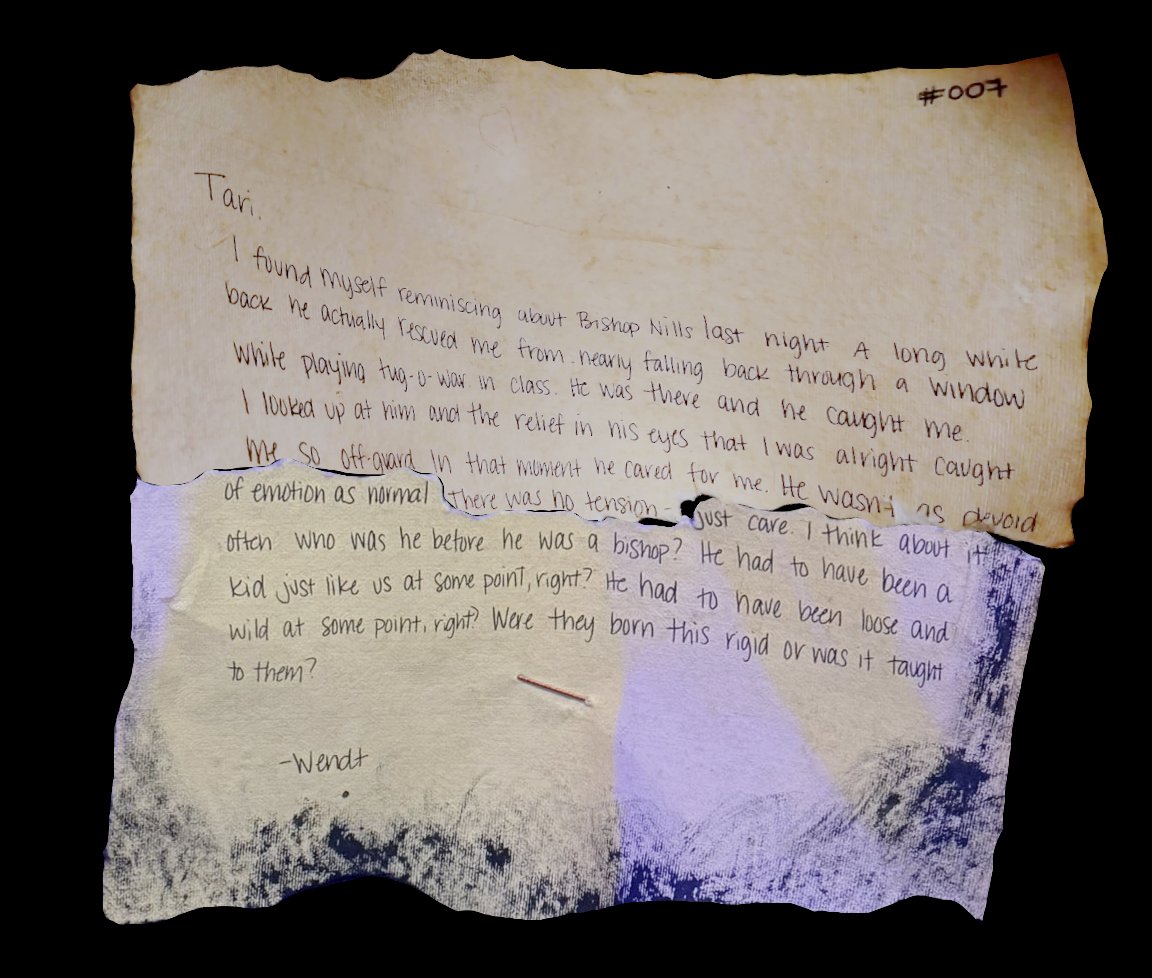 #007
Tari.
I found myself reminiscing about Bishop Nills last night A long white
back he actually rescued me from nearly falling back through a window
while playing tug-o-war in class. He was there and he caught me.
I looked up at him and the relief in his eyes that I was alright caught
me so off-guard In that moment he cared for me. He wasn't as devoid
of emotion as normal There was no tension - just care. I think about it
often who was he before he was a bishop? He had to have been a
kid just like us at some point, right? He had to have been loose and
wild at some point, right? Were they born this rigid or was it taught
to them?
-Wendt